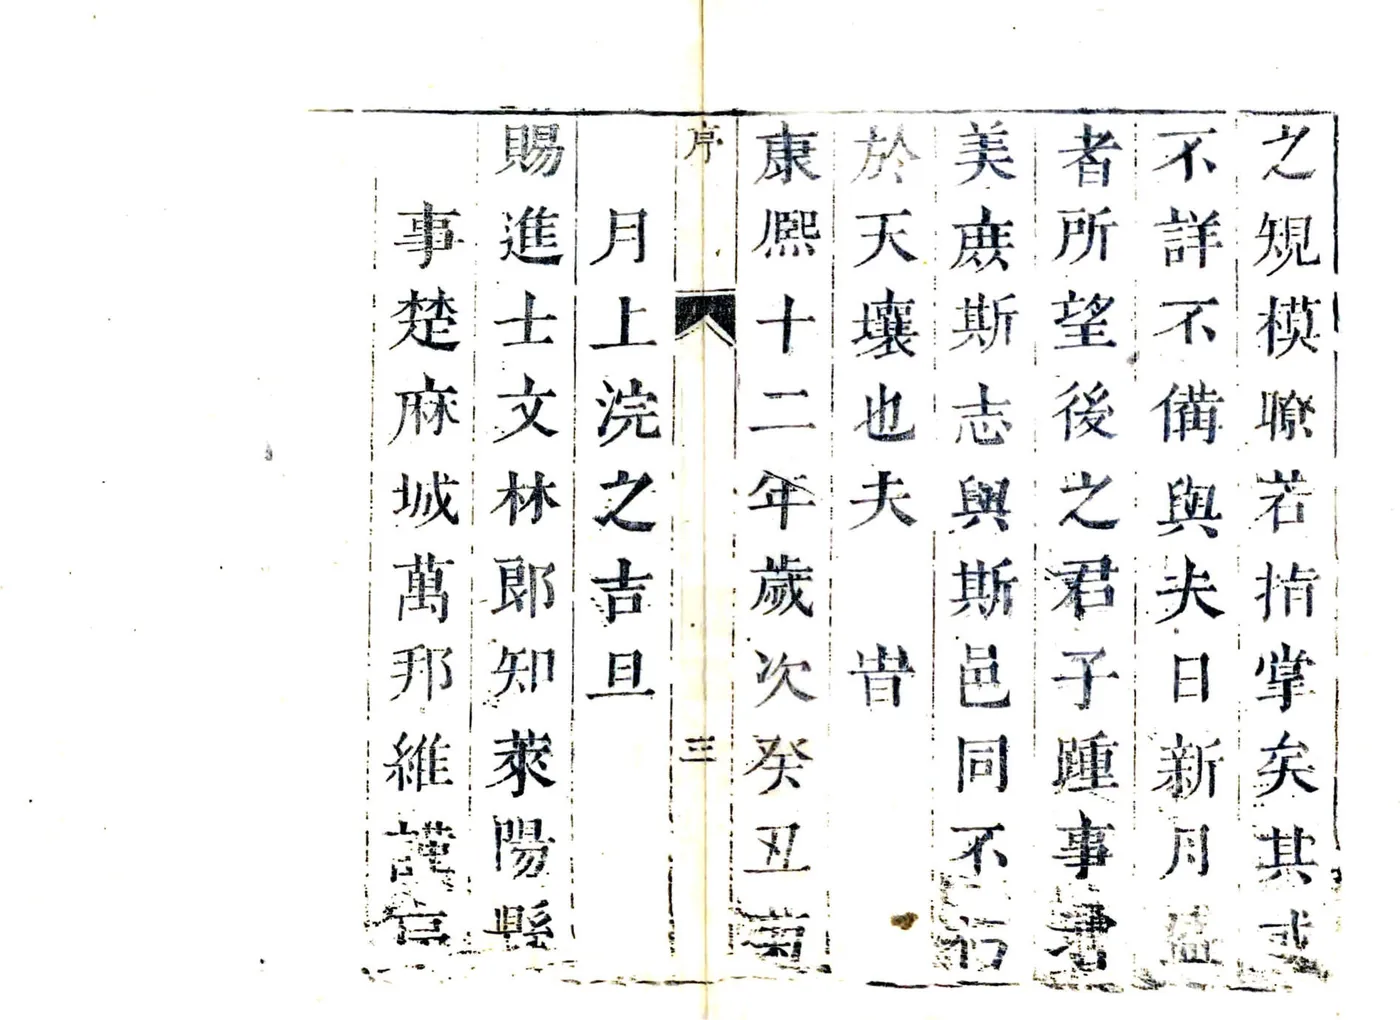 之規模瞭若指掌矣其或
不詳不備與夫日新月盛
者所望後之君子踵事書
美庻斯志與斯邑同不朽
於天壤也夫　旹
康熙十二年歲次癸丑菊
序　三
月上浣之吉旦
賜進士文林郎知萊陽縣
事楚麻城萬邦維謹言